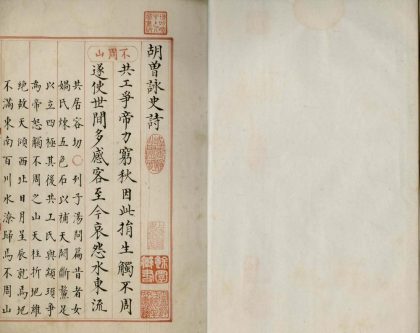 胡曾詠史詩
不周山
共工爭帝力窮秋因此捐生觸不周
遂使世間多感客至今哀怨水東流
共居容切〇列子湯問篇昔者女
媧氏煉五色石以補天闕斷鰲足
以立四極其後共工氏與顓頊爭
為帝怒觸不周之山天柱折地維
絶故天傾西北日月星辰就焉地
不滿東南百川水潦歸焉不周山